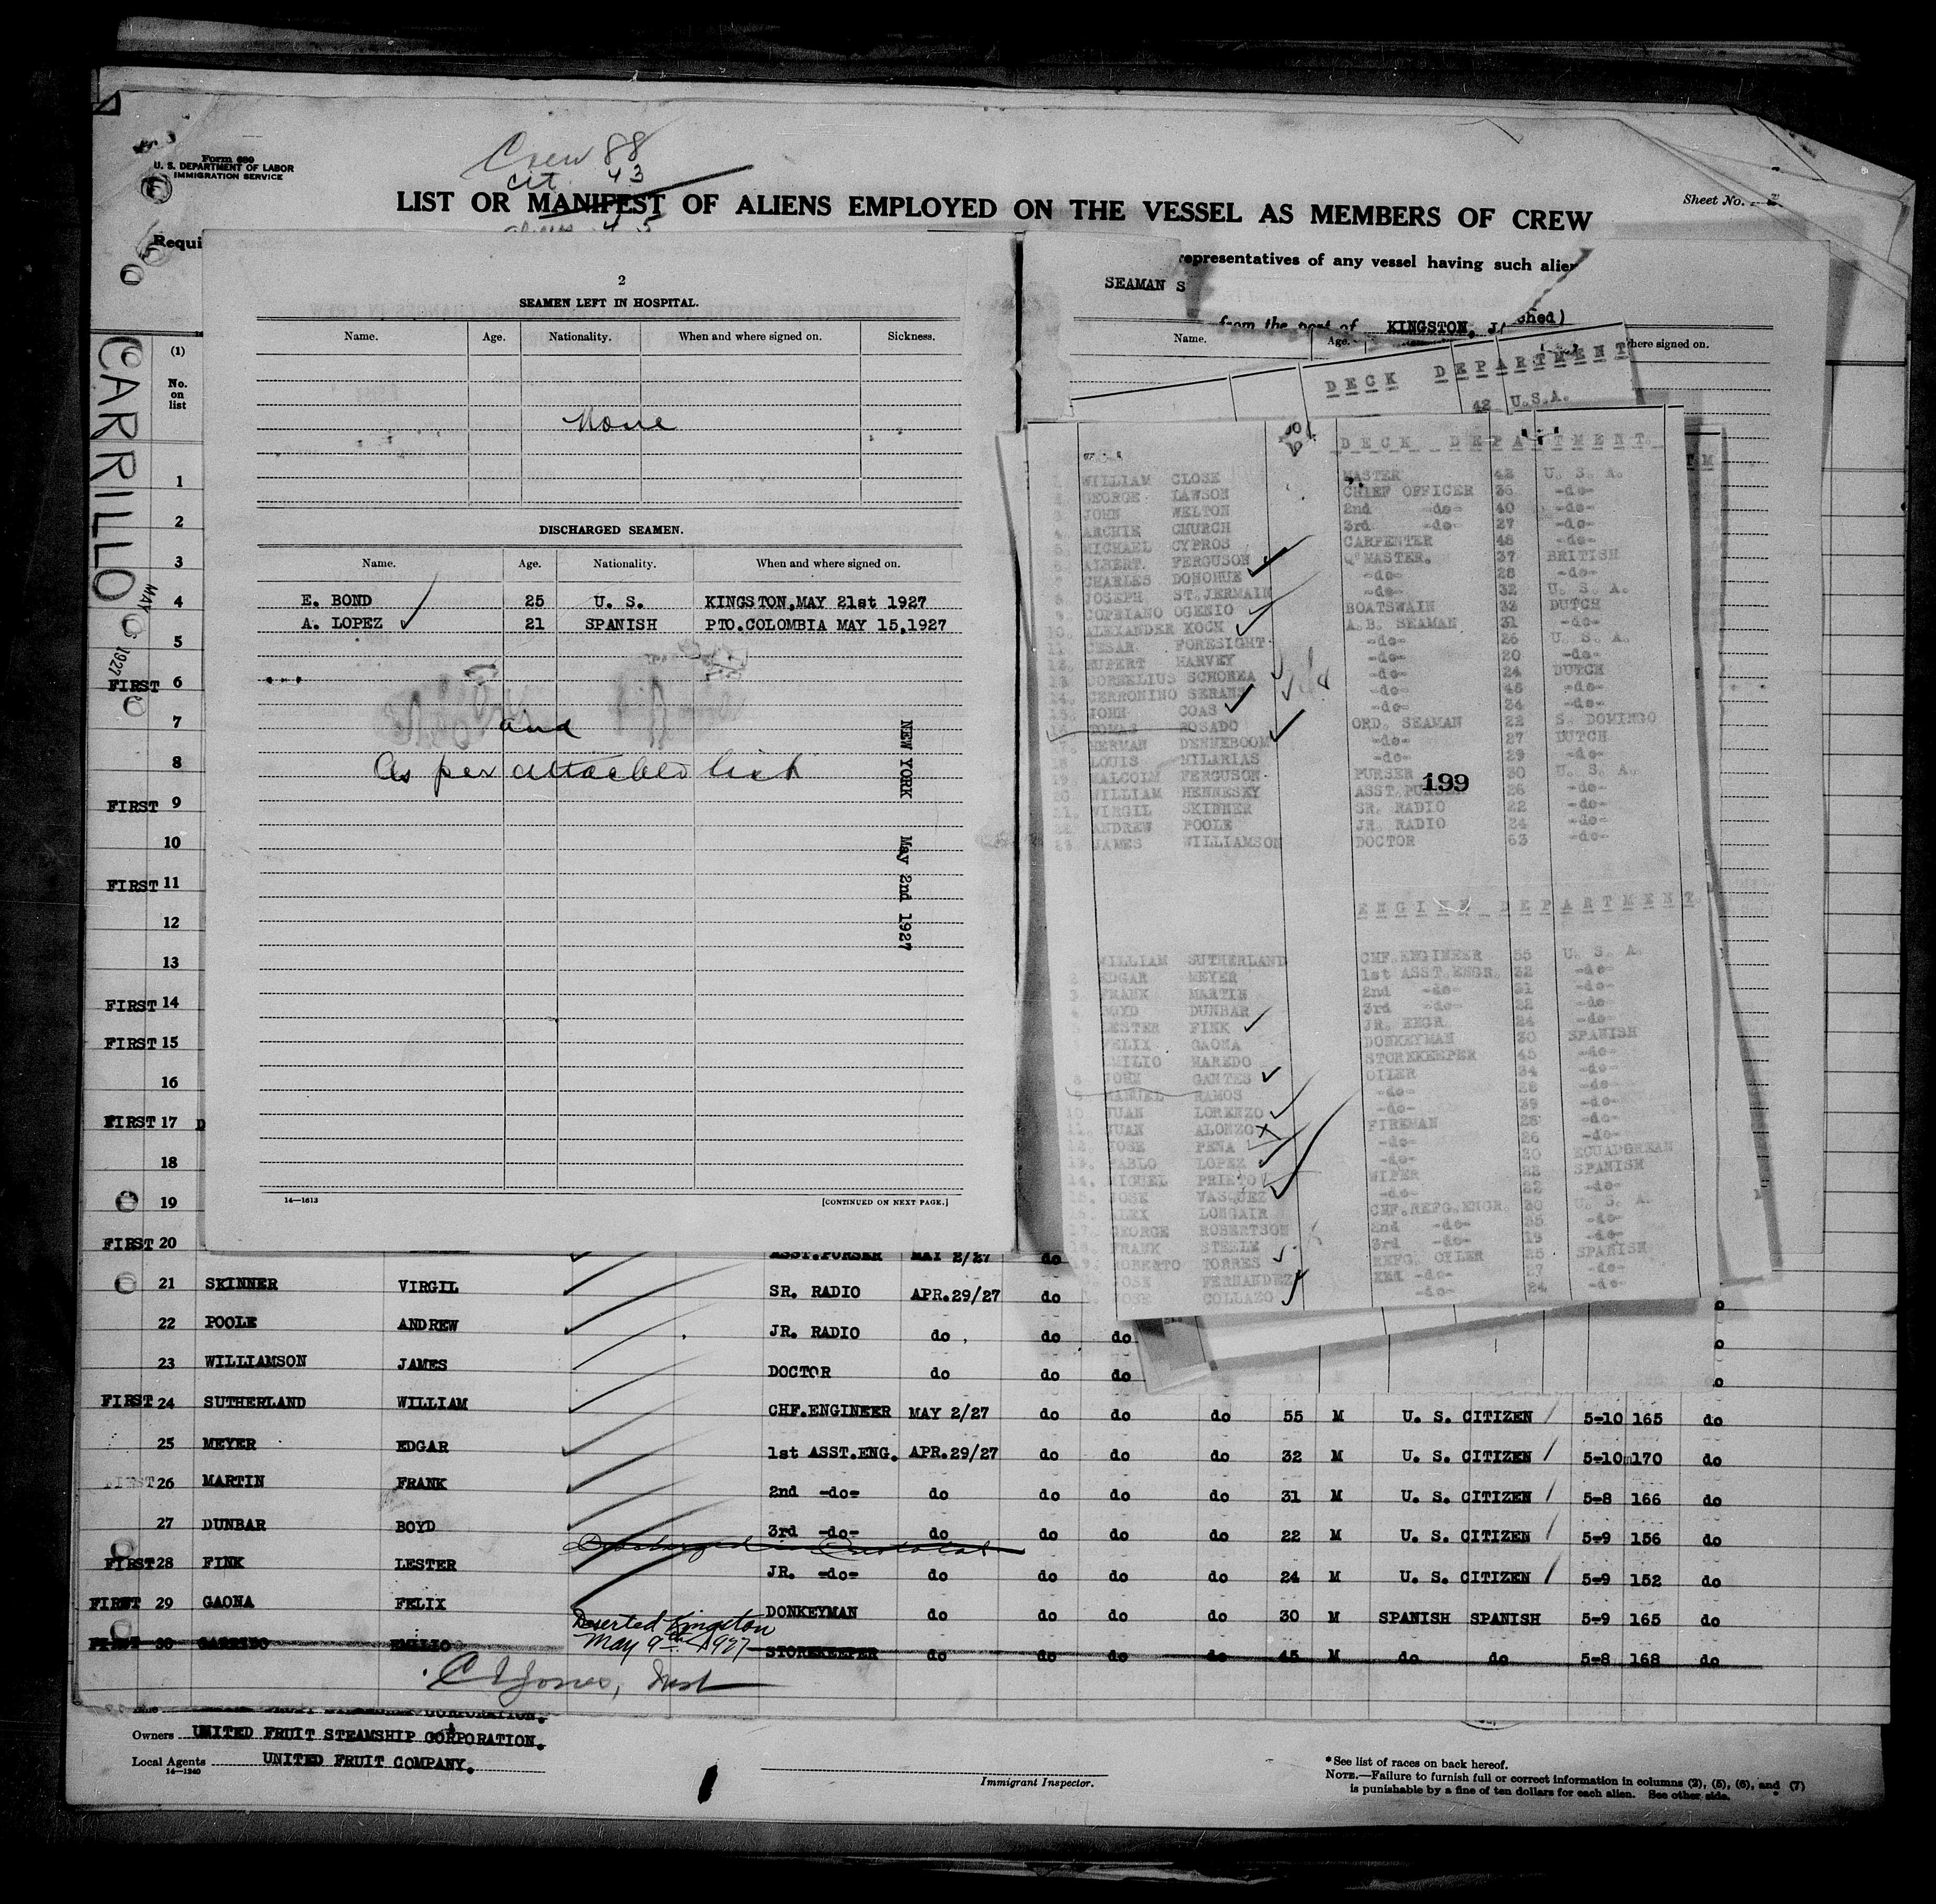 Form 689
U. S. DEPARTMENT OF LABOR
IMMIGRATION SERVICE
Crew 88
cit. 43
45
LIST OR MANIFEST OF ALIENS EMPLOYED ON THE VESSEL AS MEMBERS OF CREW
Sheet No.
Requi
representatives of any vessel having such alien
from the port of KINGSTON, J
CARRILLO
MAY 1927
(1)
No. on list
1
2
3
4
5
FIRST 6
7
8
FIRST 9
10
FIRST 11
12
13
FIRST 14
FIRST 15
16
FIRST 17
18
19
FIRST 20
2
SEAMEN LEFT IN HOSPITAL.
Name. Age. Nationality. When and where signed on. Sickness.
None
DISCHARGED SEAMEN.
Name. Age. Nationality. When and where signed on.
E. BOND 25 U. S. KINGSTON, MAY 21st 1927
A. LOPEZ 21 SPANISH PTO.COLOMBIA MAY 15,1927
and
As per attached list
NEW YORK May 2nd 1927
14—1613
[CONTINUED ON NEXT PAGE.]
SEAMAN S
shed)
Name. Age. here signed on.
DECK DEPARTMENT
42 U.S.A.
DECK DEPARTMENT
1. WILLIAM CLOSE MASTER 42 U. S. A.
2. GEORGE LAWSON CHIEF OFFICER 36 -do-
3. JOHN WELTON 2nd -do- 40 -do-
4. ARCHIE CHURCH 3rd -do- 27 -do-
5. MICHAEL CYPROS CARPENTER 48 -do-
6. ALBERT FERGUSON Q'MASTER. 37 BRITISH
7. CHARLES DONOHUE -do- 28 -do-
8. JOSEPH ST.JERMAIN -do- 32 U. S. A.
9. COPRIANO OGENIO BOATSWAIN 33 DUTCH
10. ALEXANDER KOCK A.B. SEAMAN 31 -do-
11. CESAR FORESIGHT -do- 26 U. S. A.
12. RUPERT HARVEY -do- 20 -do-
13. CORNELIUS SCHOREA -do- 24 DUTCH
14. GERRONIMO SERANS -do- 46 -do-
15. JOHN COAS -do- 34 -do-
16. TOMAS ROSADO ORD. SEAMAN 22 S. DOMINGO
17. HERMAN DENNEBOOM -do- 27 DUTCH
18 LOUIS HILARIAS -do- 29 -do-
19. MALCOLM FERGUSON PURSER 30 U. S. A.
20. WILLIAM HENNESKY ASST.PURSER 26 -do-
21. VIRGIL SKINNER SR. RADIO 22 -do-
22. ANDREW POOLE JR. RADIO 24 -do-
23. JAMES WILLIAMSON DOCTOR 63 -do-
199
ENGINE DEPARTMENT
WILLIAM SUTHERLAND CHF.ENGINEER 55 U. S. A.
2 EDGAR MEYER 1st ASST.ENGR. 32 -do-
3. FRANK MARTIN 2nd -do- 31 -do-
4 BOYD DUNBAR 3rd -do- 22 -do-
LESTER FINK JR. ENGR 24 -do-
FELIX GAONA DONKEYMAN 30 SPANISH
EMILIO STOREKEEPER 45 -do-
8 JOHN GANTES OILER 34 -do-
9 MANUEL RAMOS -do- 28 -do-
10 JUAN LORENZO -do- 39 -do-
11. JUAN ALONZO FIREMAN 28 -do-
12. JOSE PENA -do- 26 -do-
13. PABLO LOPEZ -do- 20 ECUADOREAN
14. MIGUEL PRIETO WIPER 22 SPANISH
15. JOSE VASQUEZ -do- 22 -do-
16. ALEX LONGAIR CHF.REFG.ENGR. 30 U. S. A.
17. GEORGE ROBERTSON 2nd -do- 35 -do-
18. FRANK STEELE 3rd -do- 19 -do-
19. ROBERTO TORRES REFG. OILER 25 SPANISH
JOSE FERNANDEZ -do- 27 -do-
JOSE COLLAZO -do- 24 -do-
ASST.PURSER MAY 2/27 do
21 SKINNER VIRGIL SR. RADIO APR.29/27 do
22 POOLE ANDREW JR. RADIO do do do
23 WILLIAMSON JAMES DOCTOR do do do
FIRST 24 SUTHERLAND WILLIAM CHF.ENGINEER MAY 2/27 do do do 55 M U. S. CITIZEN 5-10 165 do
25 MEYER EDGAR 1st ASST.ENG. APR.29/27 do do do 32 M U. S. CITIZEN 5-10 170 do
FIRST 26 MARTIN FRANK 2nd -do- do do do do 31 M U. S. CITIZEN 5-8 166 do
27 DUNBAR BOYD 3rd -do- do do do do 22 M U. S. CITIZEN 5-9 156 do
FIRST 28 FINK LESTER JR. -do- do do do do 24 M U. S. CITIZEN 5-9 152 do
FIRST 29 GAONA FELIX DONKEYMAN do do do do 30 M SPANISH SPANISH 5-9 165 do
Deserted Kingston
May 9th 1927
FIRST 30 EMILIO STOREKEEPER do do do do 45 M do do 5-8 168 do
C Jones, Insp
CORPORATION.
Owners UNITED FRUIT STEAMSHIP CORPORATION.
Local Agents UNITED FRUIT COMPANY.
14—1240
Immigrant Inspector.
*See list of races on back hereof.
NOTE.—Failure to furnish full or correct information in columns (2), (5), (6), and (7)
is punishable by a fine of ten dollars for each alien. See other side.